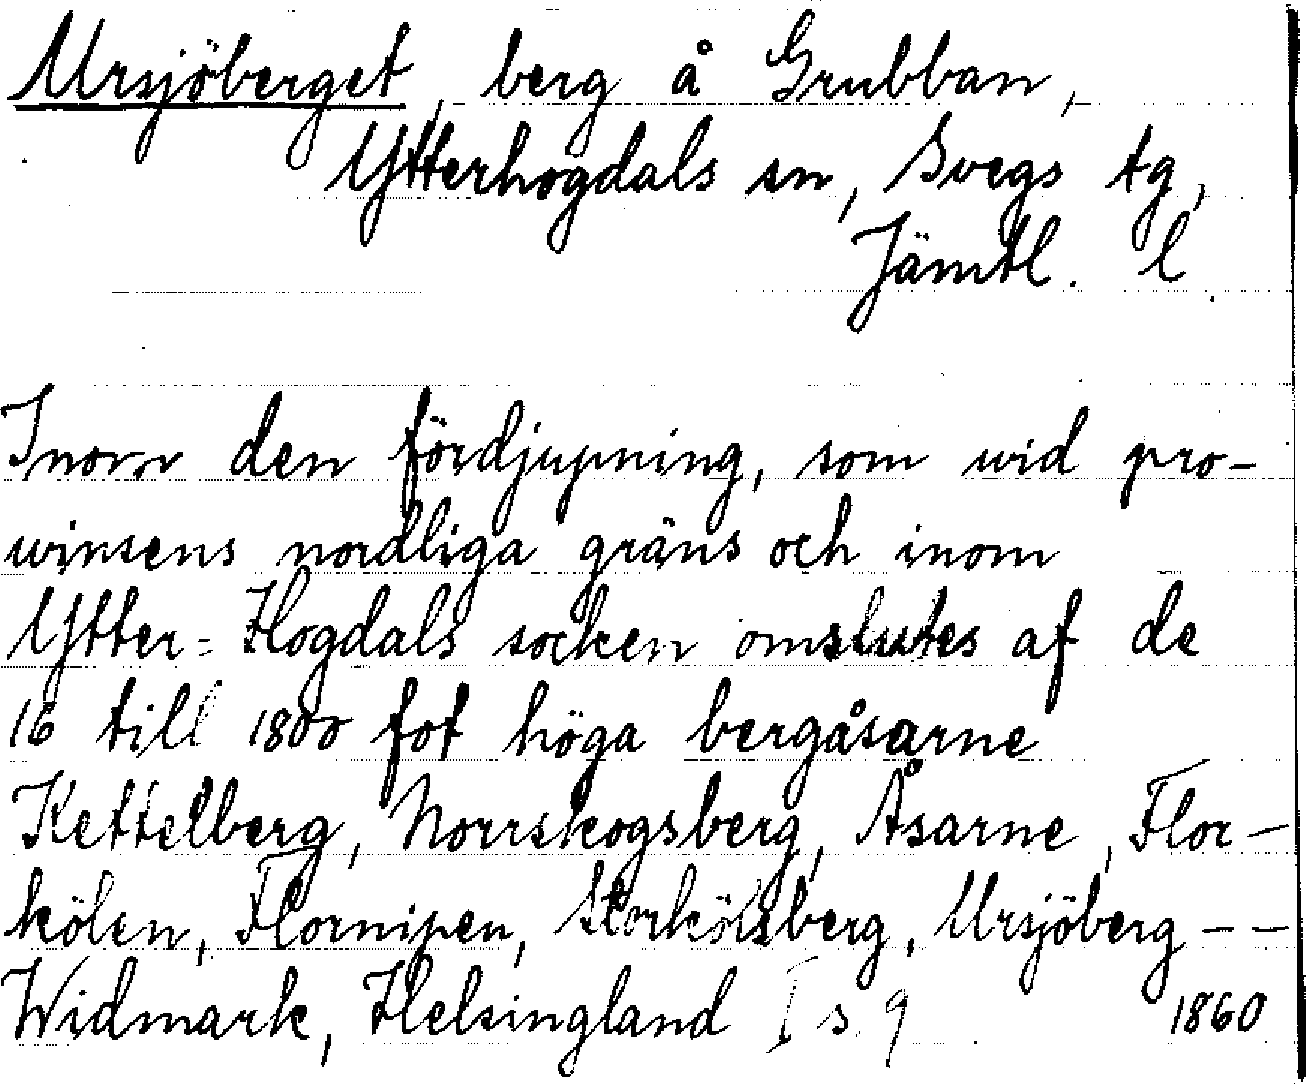 Ursjöberget, berg å Grubban,
Ytterhogdals sn, Svegs tg,
Jämtl. l.
Inom den fördjupning, som wid pro-
winsens nordliga gräns och inom
Ytter=Hogdals socken omslutes af de
16 till 1800 fot höga bergåsarne
Kettelberg, Norrskogsberg, Åsarne, Flor-
kölen, Flornipen, Storkölsberg, Ursjöberg - -
Widmark, Helsingland I s. 9 1860